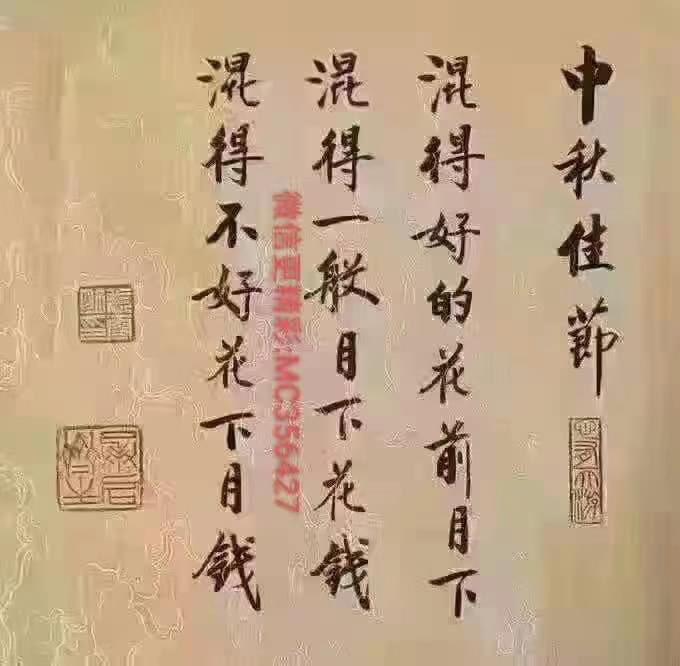 中秋佳節
混得好的花前月下
混得一般月下花钱
混得不好花下月钱
微信更精彩:MC356427